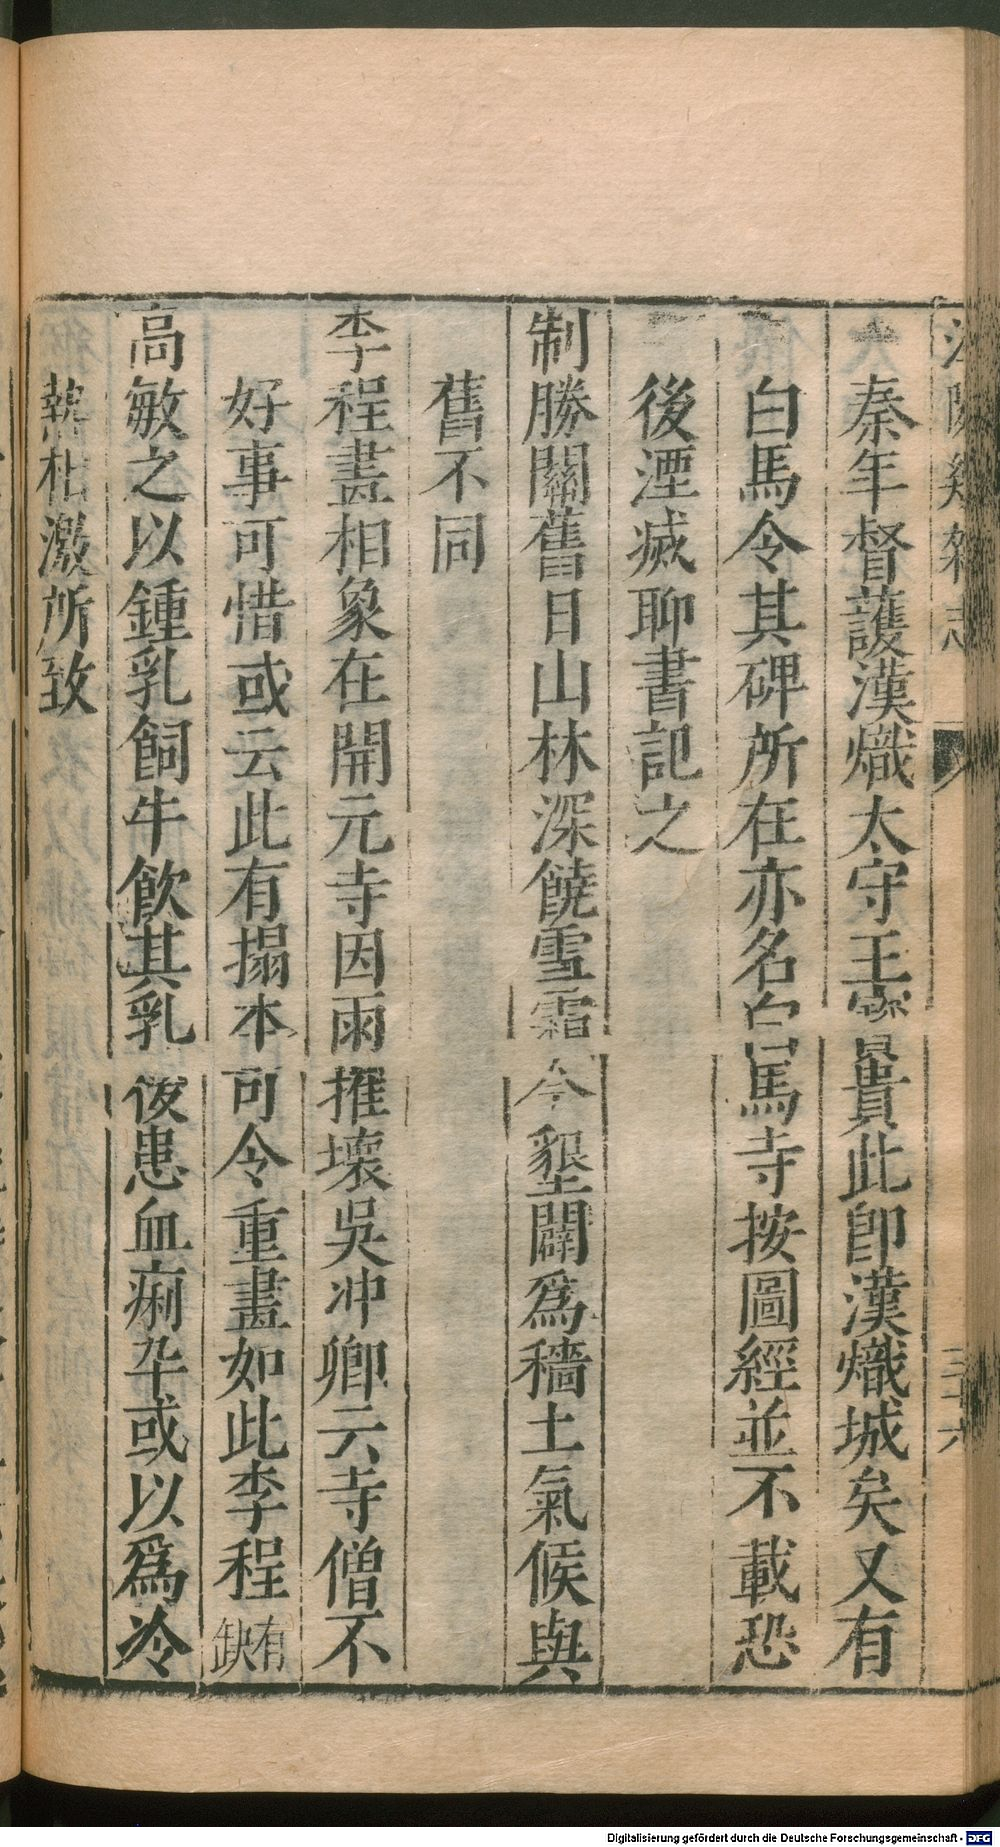 秦年督護漢熾太守王
貴此卽漢熾城矣又有
白馬令其碑所在亦名白馬寺按圖經並不載恐
後湮㓕聊書記之
制勝關舊日山林深饒雪霜今墾闢爲穡土氣候與
舊不同
李程畫相象在開元寺因雨摧壞吳冲卿云寺僧不
好事可惜或云此有搨本可令重畫如此李程有缺
高敏之以鍾乳飼牛飲其乳後患血痢卒或以爲冷
熱相激所致
三十六
Digitalisierung gefördert durch die Deutsche Forschungsgemeinschaft - DFG